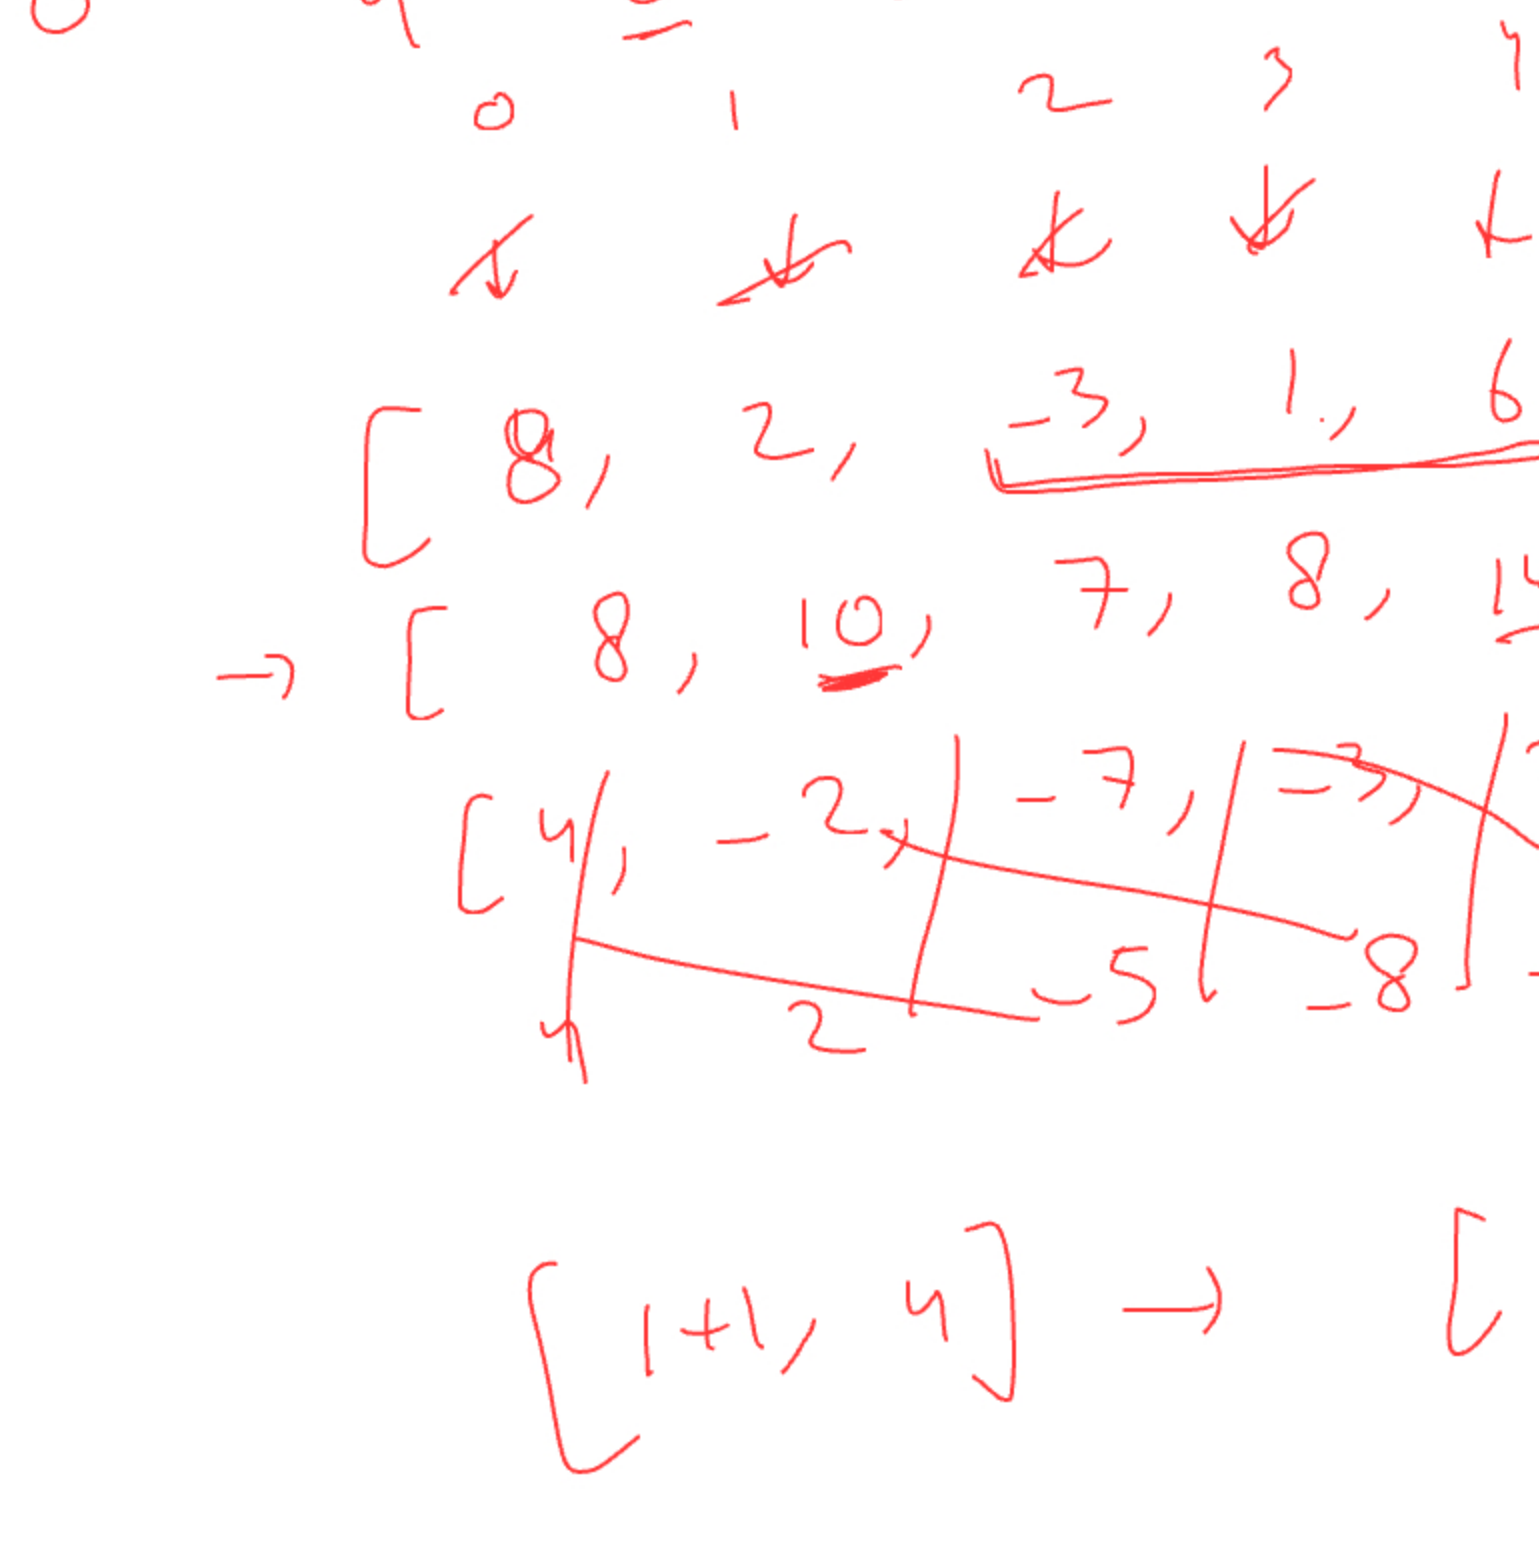 0 1 2 3 4
[ 8, 2, -3, 1, 6
→ [ 8, 10, 7, 8, 14
[ 4, -2, -7, -3,
4 2 -5 -8
[ 1+1, 4 ] → [